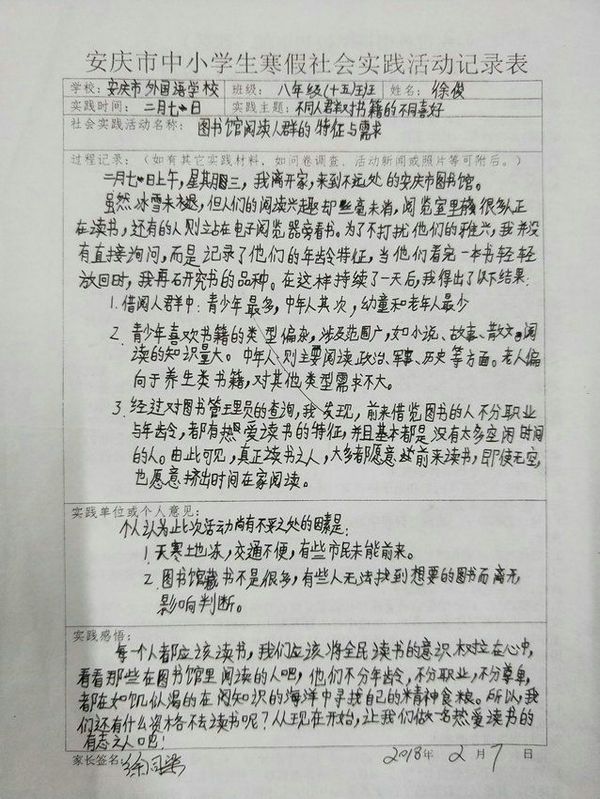 安庆市中小学生寒假社会实践活动记录表
学校：安庆市外国语学校 班级：八年级(十五)班 姓名：徐俊
实践时间：二月七日 实践主题：不同人群对书籍的不同喜好
社会实践活动名称：图书馆阅读人群的特征与需求
过程记录：（如有其它实践材料，如问卷调查、活动新闻或照片等可附后。）
二月七日上午，星期三，我离开家，来到不远处的安庆市图书馆。
虽然冰雪未褪，但人们的阅读兴趣却丝毫未消，阅览室里很多人正
在读书，还有的人则立站在电子阅览器旁看书。为了不打扰他们的雅兴，我并没
有直接询问，而是记录了他们的年龄特征，当他们看完一本书轻轻
放回时，我再研究书的品种。在这样持续了一天后，我得出了以下结果：
1. 借阅人群中：青少年最多，中年人其次，幼童和老年人最少
2. 青少年喜欢书籍的类型偏杂，涉及范围广，如小说、故事、散文。阅
读的知识量大。中年人则主要阅读政治、军事、历史等方面。老人偏
向于养生类书籍，对其他类型需求不大。
3. 经过对图书管理员的查询，我发现，前来借览图书的人不分职业
与年龄，都有热爱读书的特征，并且基本都是没有太多空闲时间
的人。由此可见，真正读书之人，大多都愿意前来读书，即使无空，
也愿意挤出时间在家阅读。
实践单位或个人意见：
个人认为此次活动尚有不足之处的因素是：
1. 天寒地冻，交通不便，有些市民未能前来。
2. 图书馆藏书不是很多，有些人无法找到想要的图书而离开
影响判断。
实践感悟：
每个人都应该读书，我们应该将全民读书的意识树立在心中，
看看那些在图书馆里阅读的人吧，他们不分年龄，不分职业，不分尊卑，
都在如饥似渴的在阅知识的海洋中寻找自己的精神食粮。所以，我
们还有什么资格不去读书呢？从现在开始，让我们做一名热爱读书的
有志之人吧！
家长签名： 2018年 2月 7日